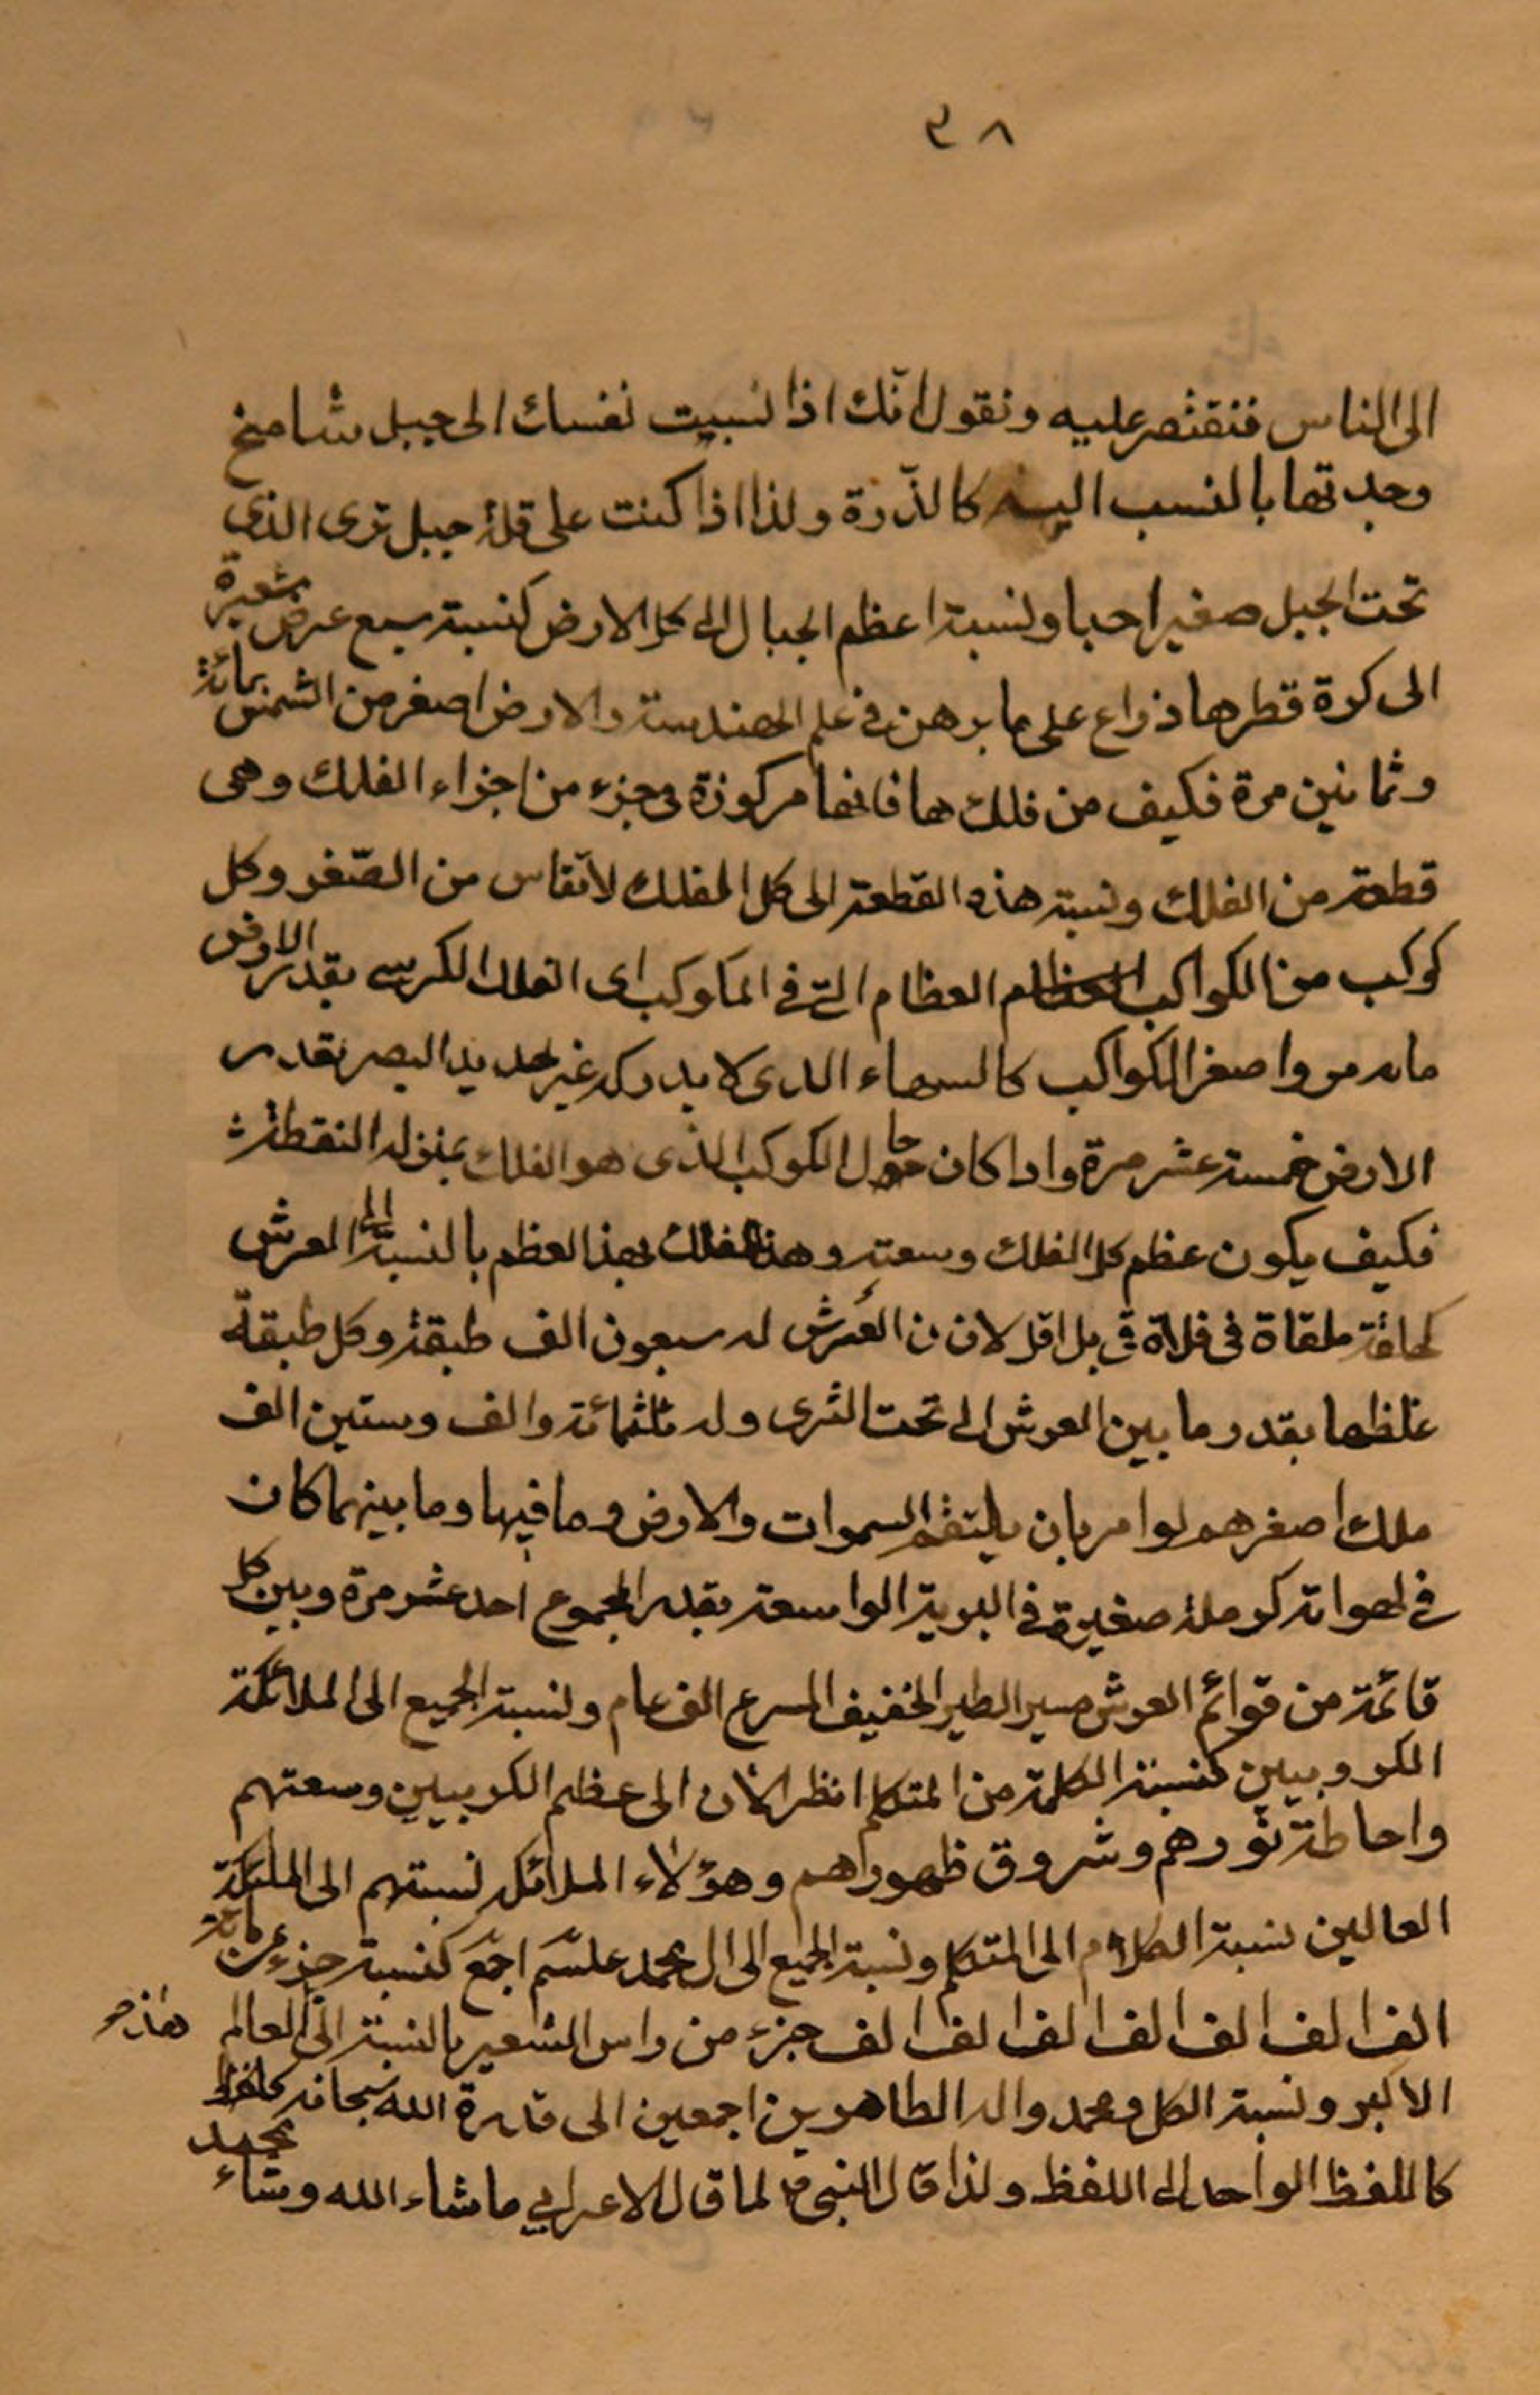 ٣٨
الى الناس فنقتصر عليه ونقول انّك اذا نسبت نفسك الى جبل شامخ
وجدتها بالنسب اليه كالذّرة ولذا اذا كنت على قلة جبل ترى الذي
تحت الجبل صغيرا جدا ونسبة اعظم الجبال الى كل الارض كنسبة سبع عرض شعيرة
الى كرة قطرها ذراع على ما برهن في علم الهندسة والارض اصغر من الشمس بمائة
وثمانين مرة فكيف من فلكها فانها مركوزة في جزء من اجزاء الفلك وهي
قطعة من الفلك ونسبة هذه القطعة الى كل الفلك لا تقاس من الصّغر وكل
كوكب من الكواكب العظام التي في المكوكب اى الفلك الكرسي بقدر الارض
مائه مره واصغر الكواكب كالسهاء الذى لا يدركه غير حديد البصر بقدر
الارض خمسة عشر مرة واذا كان حال الكوكب الذى هو الفلك بمنزله النقطة
فكيف يكون عظم كل الفلك وسعته وهذا الفلك بهذا العظم بالنسبة الى العرش
كحلقة ملقاة في فلاة قي بل اقل لان ن العرش له سبعون الف طبقة وكل طبقة
غلظها بقدر ما بين العرش الى تحت الثرى وله ثلثمائة والف وستين الف
ملك اصغرهم لو امر بان يلتقم السموات والارض وما فيها وما بينهما كان
في لهواته كرملة صغيرة في البرية الواسعة بقدر المجموع احد عشر مرة وبين كل
قائمة من قوائم العرش مسير الطير الخفيف المسرع الف عام ونسبة الجميع الى الملائكة
الكروبيين كنسبة الكلمة من المتكلم انظر الان الى عظم الكروبيين وسعتهم
واحاطة نورهم وشروق ظهورهم وهؤلاء الملائكه نسبتهم الى الملئكة
العالين نسبة الكلام الى المتكلم ونسبة الجميع الى ال محمد عليسّم اجمع كنسبة جزء من مائة
الف الف الف الف الف الف الف جزء من راس الشعير بالنسبة الى العالم هذا
الاكبر ونسبة الكل ومحمد واله الطاهرين اجمعين الى قدرة الله سبحانه
كاللفظ الواحد الى اللفظ ولذا قال النبي ص لما قال الاعرابي ما شاء الله وشاء محمد